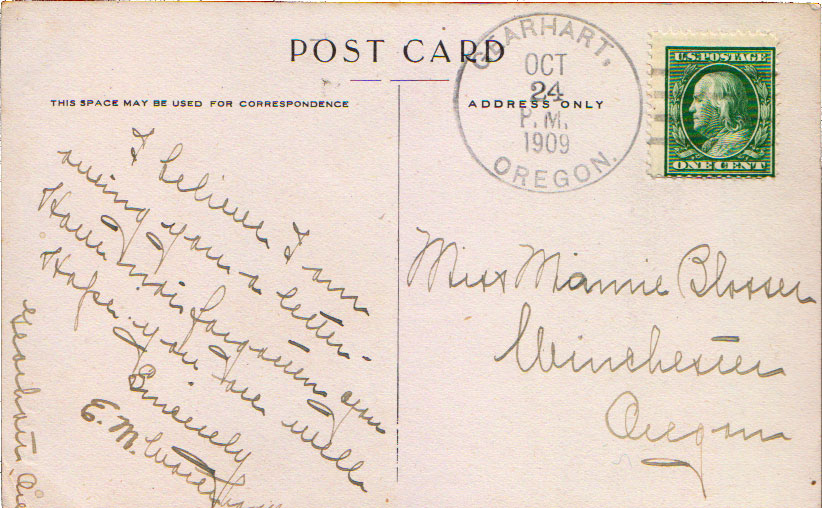 POST CARD
THIS SPACE MAY BE USED FOR CORRESPONDENCE
ADDRESS ONLY
GEARHART,
OCT
24
P.M.
1909
OREGON.
U.S. POSTAGE
ONE CENT
I believe I am
owing you a letter.
Have not forgotten you
Hope you are well
Sincerely
E. M.
Gearhart, Ore
Miss Mamie Blosser
Winchester
Oregon